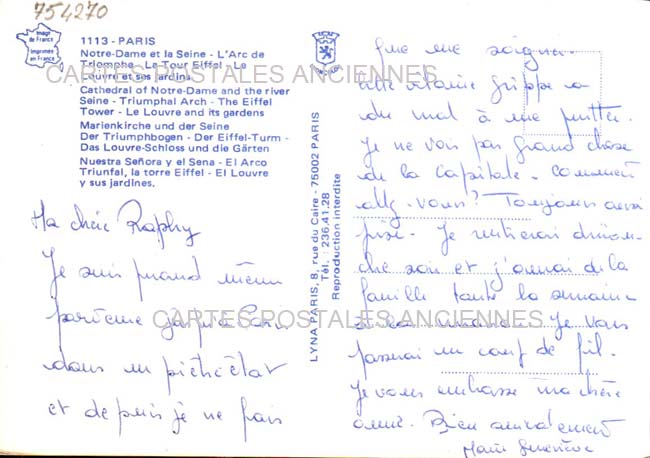 754270
Image de France
Imprimée en France
1113 - PARIS
Notre-Dame et la Seine - L'Arc de
Triomphe - La Tour Eiffel - Le
Louvre et ses jardins
Cathedral of Notre-Dame and the river
Seine - Triumphal Arch - The Eiffel
Tower - Le Louvre and its gardens
Marienkirche und der Seine
Der Triumphbogen - Der Eiffel-Turm -
Das Louvre-Schloss und die Gärten
Nuestra Señora y el Sena - El Arco
Triunfal, la torre Eiffel - El Louvre
y sus jardines.
CARTES POSTALES ANCIENNES
LYNA PARIS, 8, rue du Caire - 75002 PARIS
Tél. : 236.41.28
Reproduction interdite
Ma chère Raphy
Je suis quand même
jusqu'à Paris
dans un piètre état
et depuis je ne fais
que me soigner.
Cette grippe a
du mal à me quitter.
Je ne vois pas grand chose
de la Capitale. Comment
allez-vous? Toujours aussi
Je rentrerai diman-
che soir et j'aurai de la
famille toute la semaine
à la maison. Je vous
passerai un coup de fil.
Je vous embrasse ma chère
amie. Bien amicalement
Marie Geneviève
CARTES POSTALES ANCIENNES